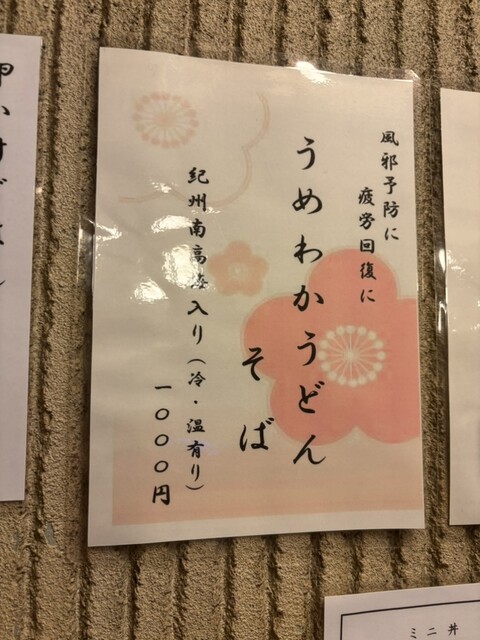 風邪予防に
疲労回復に
うめわかうどん
そば
紀州南高梅入り（冷・温有り）
一〇〇〇円
ミニ丼